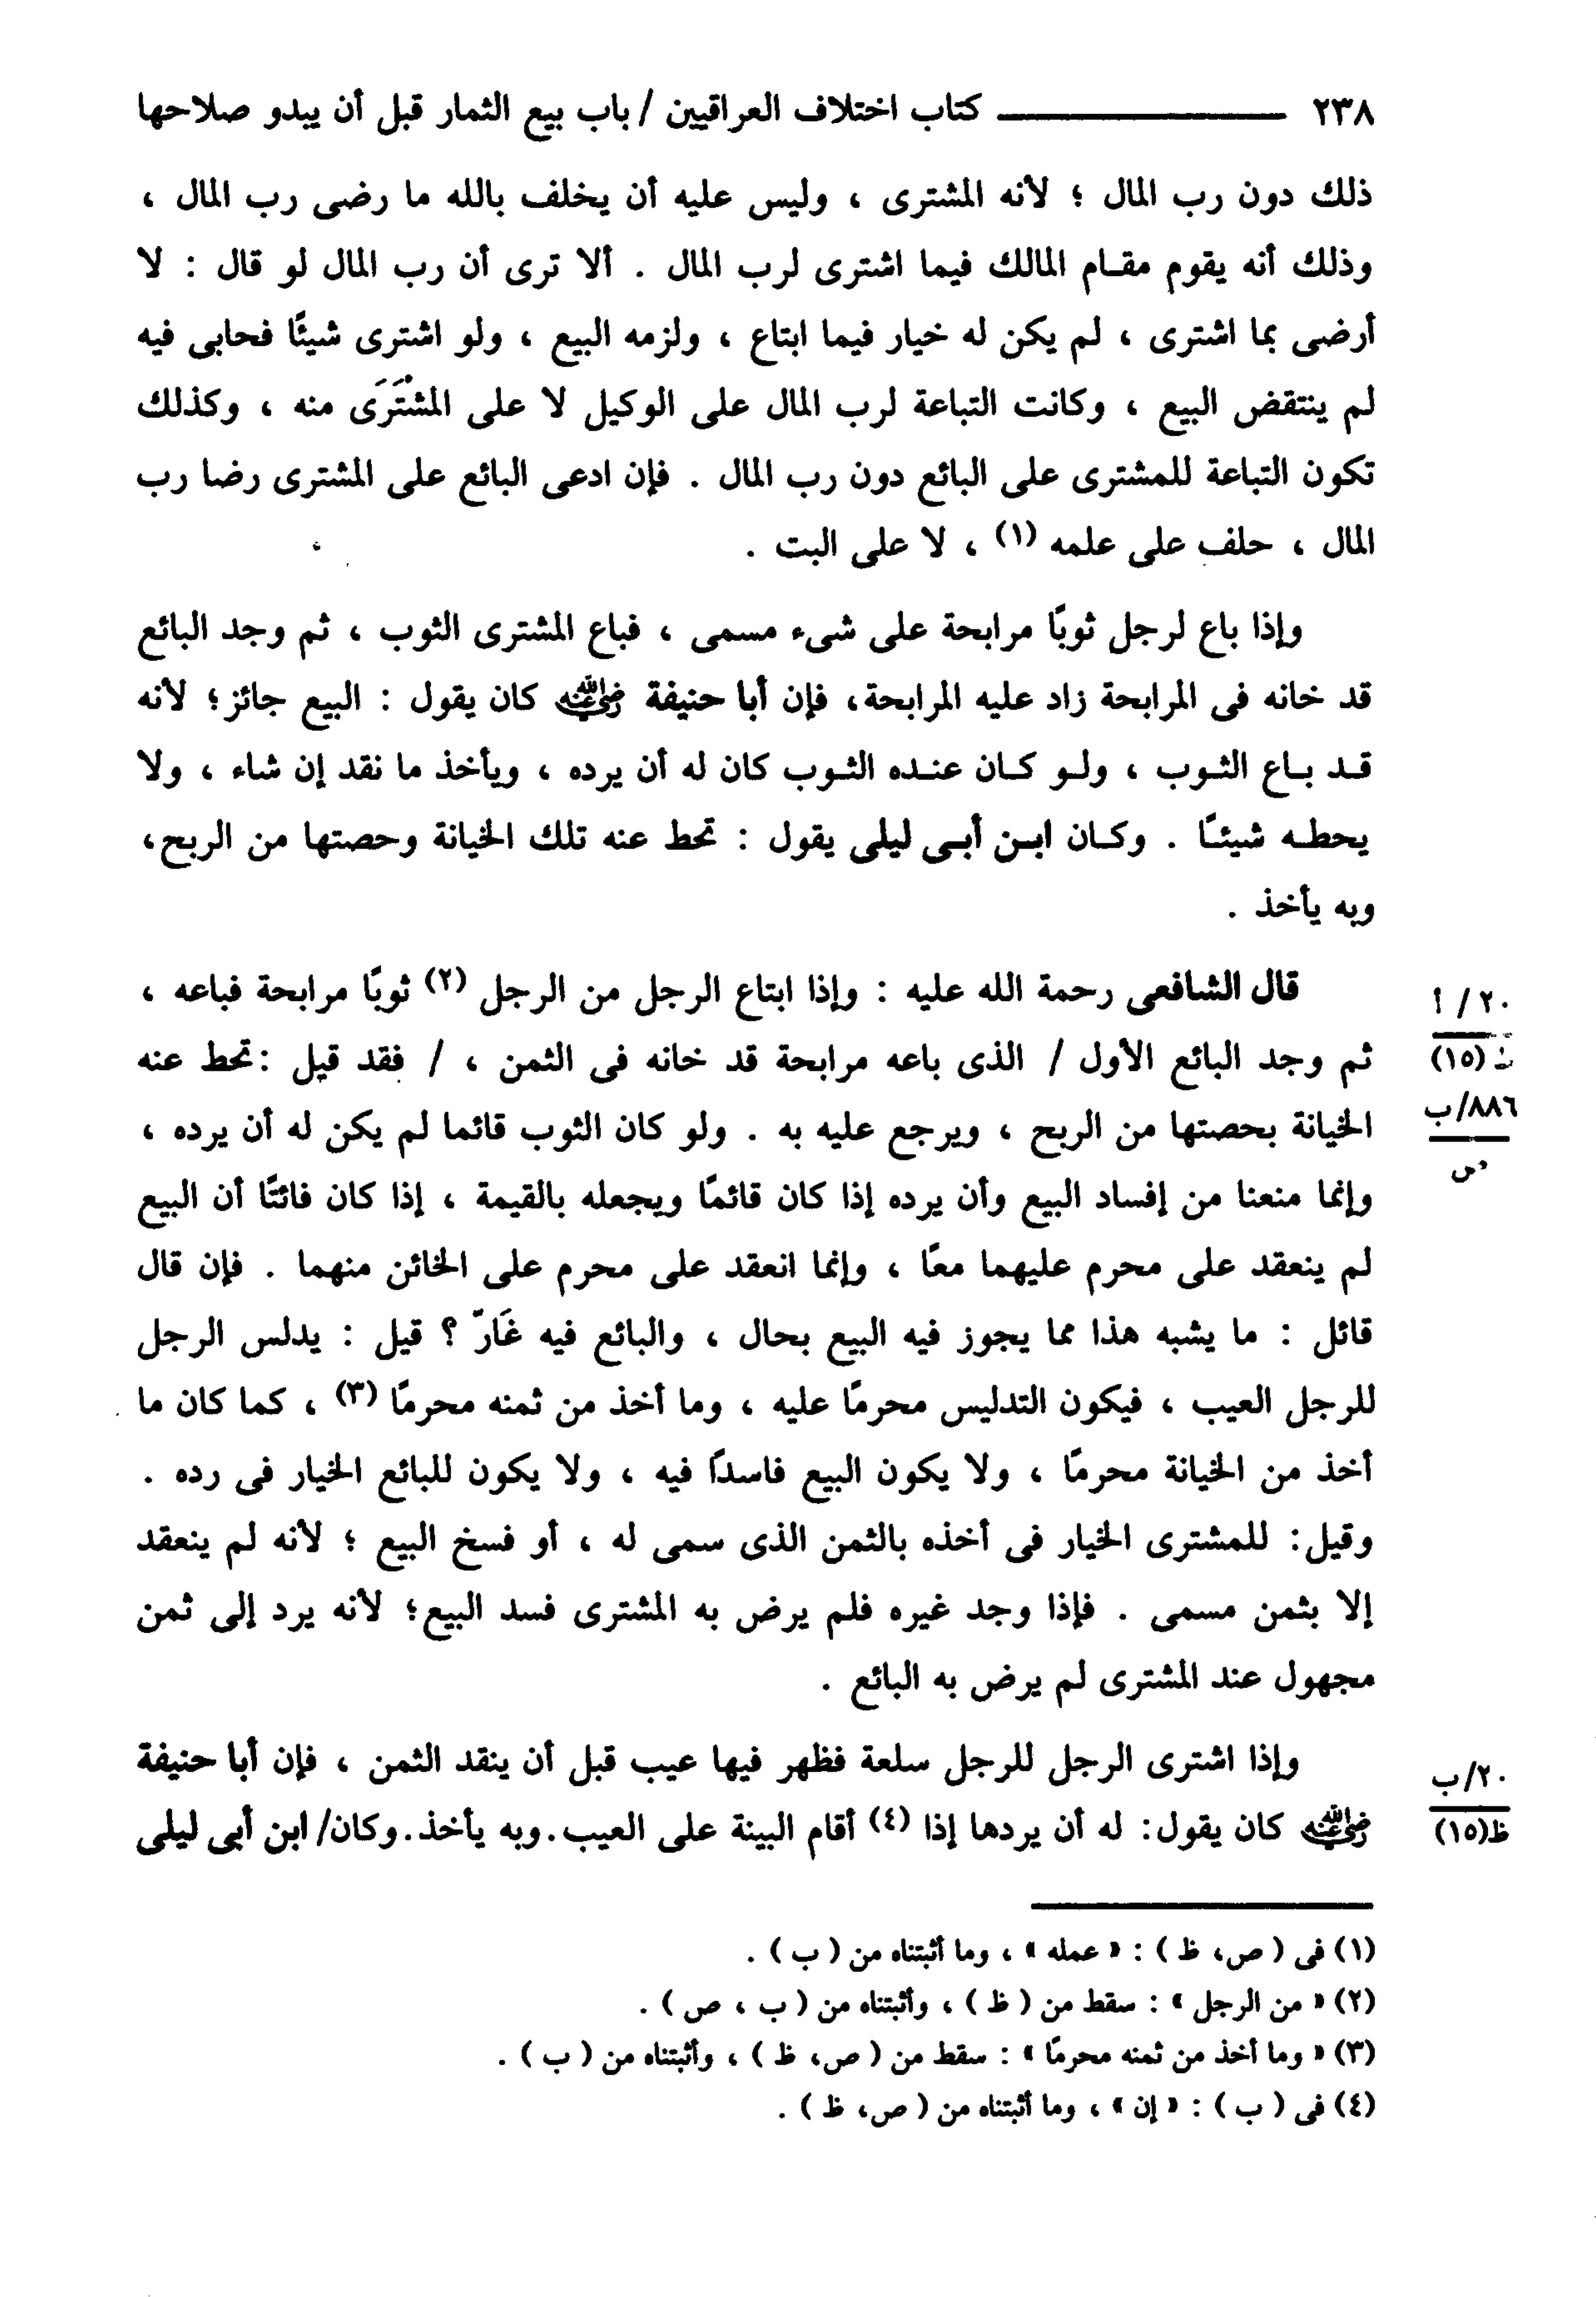 ٢٣٨ ــــــــــــــــ كتاب اختلاف العراقيين / باب بيع الثمار قبل أن يبدو صلاحها
ذلك دون رب المال ؛ لأنه المشترى ، وليس عليه أن يخلف بالله ما رضى رب المال ،
وذلك أنه يقوم مقـام المالك فيما اشترى لرب المال . ألا ترى أن رب المال لو قال : لا
أرضى بما اشترى ، لم يكن له خيار فيما ابتاع ، ولزمه البيع ، ولو اشترى شيئًا فحابى فيه
لم ينتقض البيع ، وكانت التباعة لرب المال على الوكيل لا على المشْتَرَى منه ، وكذلك
تكون التباعة للمشترى على البائع دون رب المال . فإن ادعى البائع على المشترى رضا رب
المال ، حلف على علمه (١) ، لا على البت .
وإذا باع لرجل ثوبًا مرابحة على شىء مسمى ، فباع المشترى الثوب ، ثم وجد البائع
قد خانه فى المرابحة زاد عليه المرابحة، فإن أبا حنيفة رضي الله عنه كان يقول : البيع جائز؛ لأنه
قـد بـاع الثـوب ، ولـو كـان عنـده الثـوب كان له أن يرده ، ويأخذ ما نقد إن شاء ، ولا
يحطـه شيئـًا . وكـان ابـن أبـى ليلى يقول : تحط عنه تلك الخيانة وحصتها من الربح،
وبه يأخذ .
قال الشافعى رحمة الله عليه : وإذا ابتاع الرجل من الرجل (٢) ثوبًا مرابحة فباعه ،
٢٠ / أ
ثم وجد البائع الأول / الذى باعه مرابحة قد خانه فى الثمن ، / فقد قيل :تحط عنه
(١٥)
الخيانة بحصتها من الربح ، ويرجع عليه به . ولو كان الثوب قائما لم يكن له أن يرده ،
٨٨٦/ب
ص
وإنما منعنا من إفساد البيع وأن يرده إذا كان قائمًا ويجعله بالقيمة ، إذا كان فائتًا أن البيع
لم ينعقد على محرم عليهما معًا ، وإنما انعقد على محرم على الخائن منهما . فإن قال
قائل : ما يشبه هذا مما يجوز فيه البيع بحال ، والبائع فيه غَارّ ؟ قيل : يدلس الرجل
للرجل العيب ، فيكون التدليس محرمًا عليه ، وما أخذ من ثمنه محرمًا (٣) ، كما كان ما
أخذ من الخيانة محرمًا ، ولا يكون البيع فاسدًا فيه ، ولا يكون للبائع الخيار فى رده .
وقيل: للمشترى الخيار فى أخذه بالثمن الذى سمى له ، أو فسخ البيع ؛ لأنه لم ينعقد
إلا بثمن مسمى . فإذا وجد غيره فلم يرض به المشترى فسد البيع؛ لأنه يرد إلى ثمن
مجهول عند المشترى لم يرض به البائع .
وإذا اشترى الرجل للرجل سلعة فظهر فيها عيب قبل أن ينقد الثمن ، فإن أبا حنيفة
٢٠/ب
رضي الله عنه كان يقول: له أن يردها إذا (٤) أقام البينة على العيب.وبه يأخذ.وكان/ ابن أبى ليلى
ظ(١٥)
(١) فى ( ص، ظ ) : « عمله » ، وما أثبتناه من ( ب ) .
(٢) « من الرجل » : سقط من ( ظ ) ، وأثبتناه من ( ب ، ص ) .
(٣) « وما أخذ من ثمنه محرمًا » : سقط من ( ص، ظ ) ، وأثبتناه من ( ب ) .
(٤) فى ( ب ) : « إن » ، وما أثبتناه من ( ص، ظ ) .